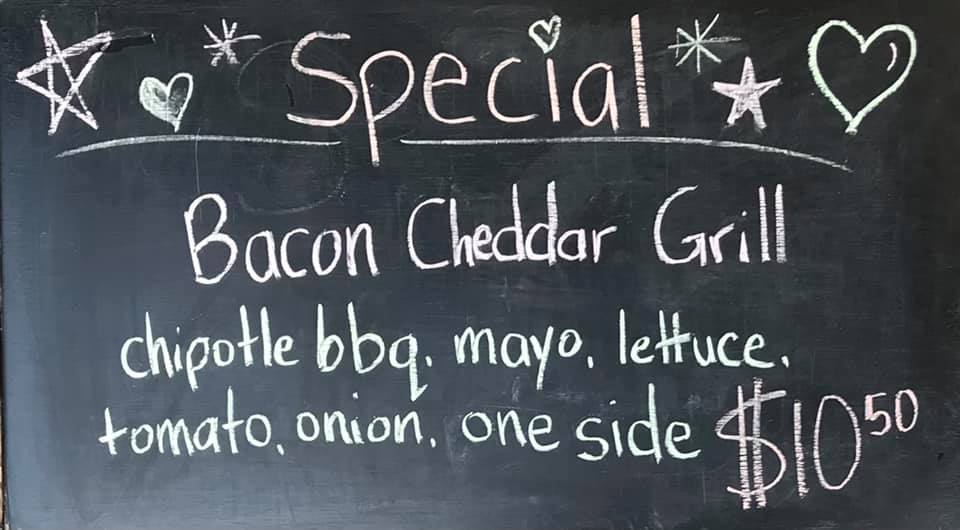 Special
Bacon Cheddar Grill
chipotle bbq. mayo. lettuce.
tomato. onion. one side $10 50